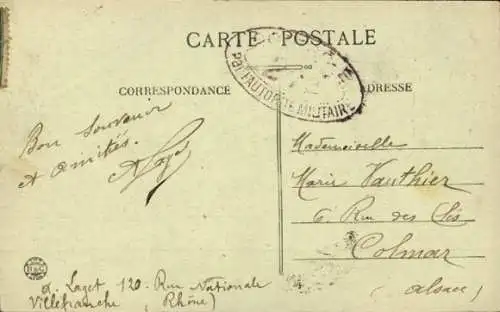 CARTE POSTALE
Par l'AUTORITÉ MILITAIRE
CORRESPONDANCE
ADRESSE
Bon Souvenir
et amitiés.
Mademoiselle
Marie Vauthier
6 Rue des Clés
Colmar
(Alsace)
A. Laget 120 Rue Nationale
Villefranche (Rhône)